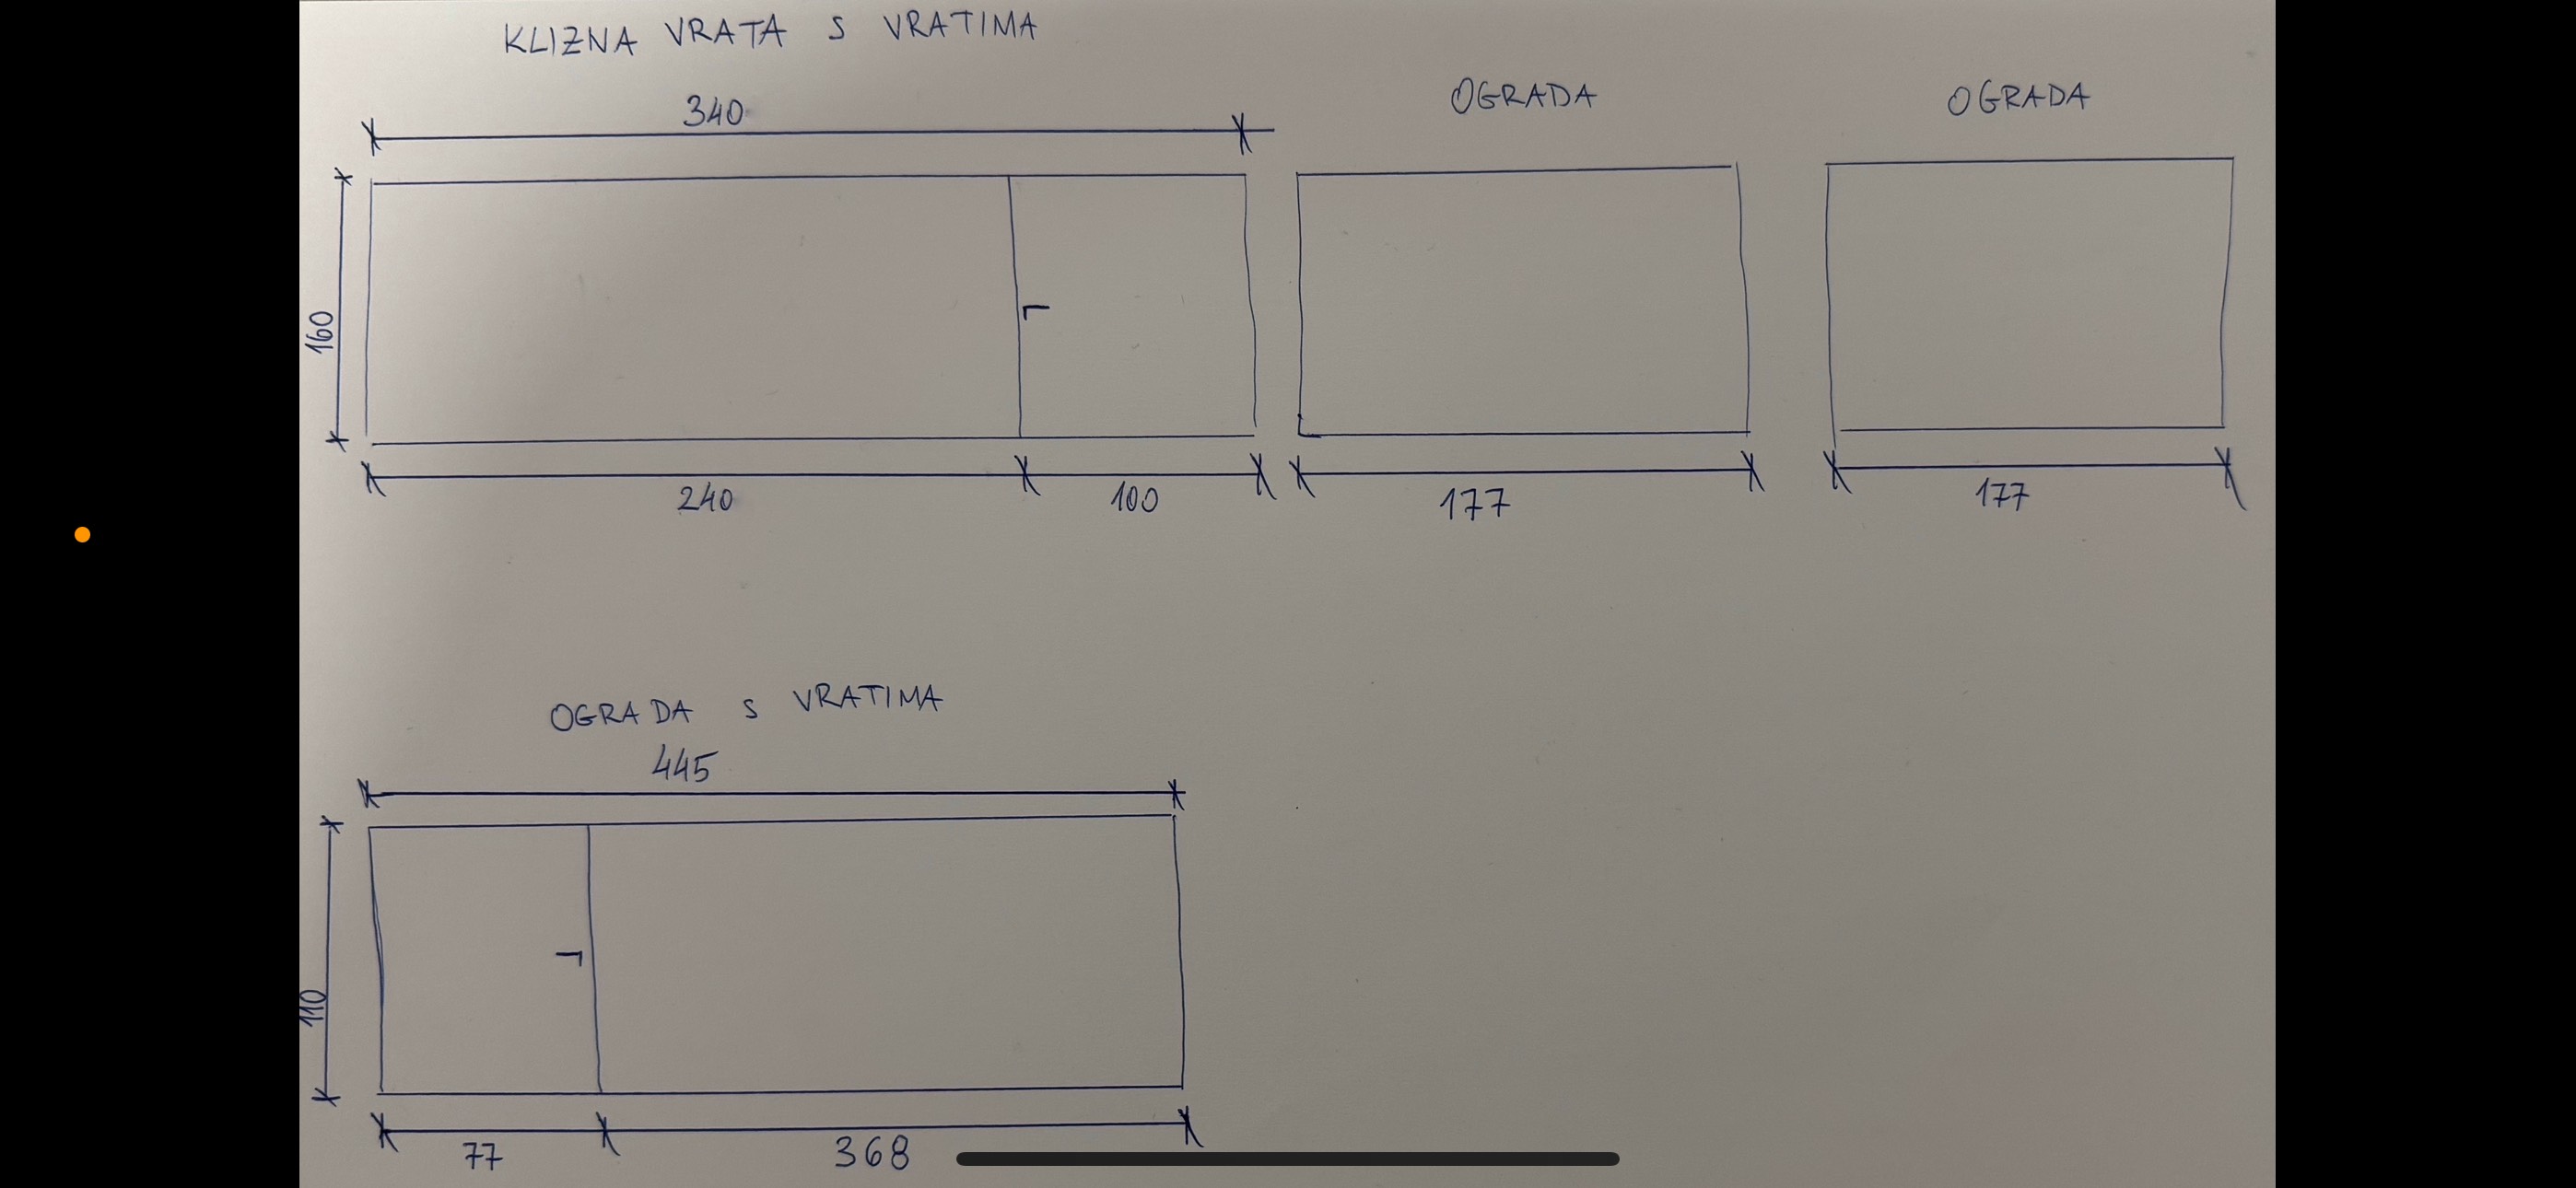 KLIZNA VRATA S VRATIMA
340
160
240
100
OGRADA
177
OGRADA
177
OGRADA S VRATIMA
445
110
77
368